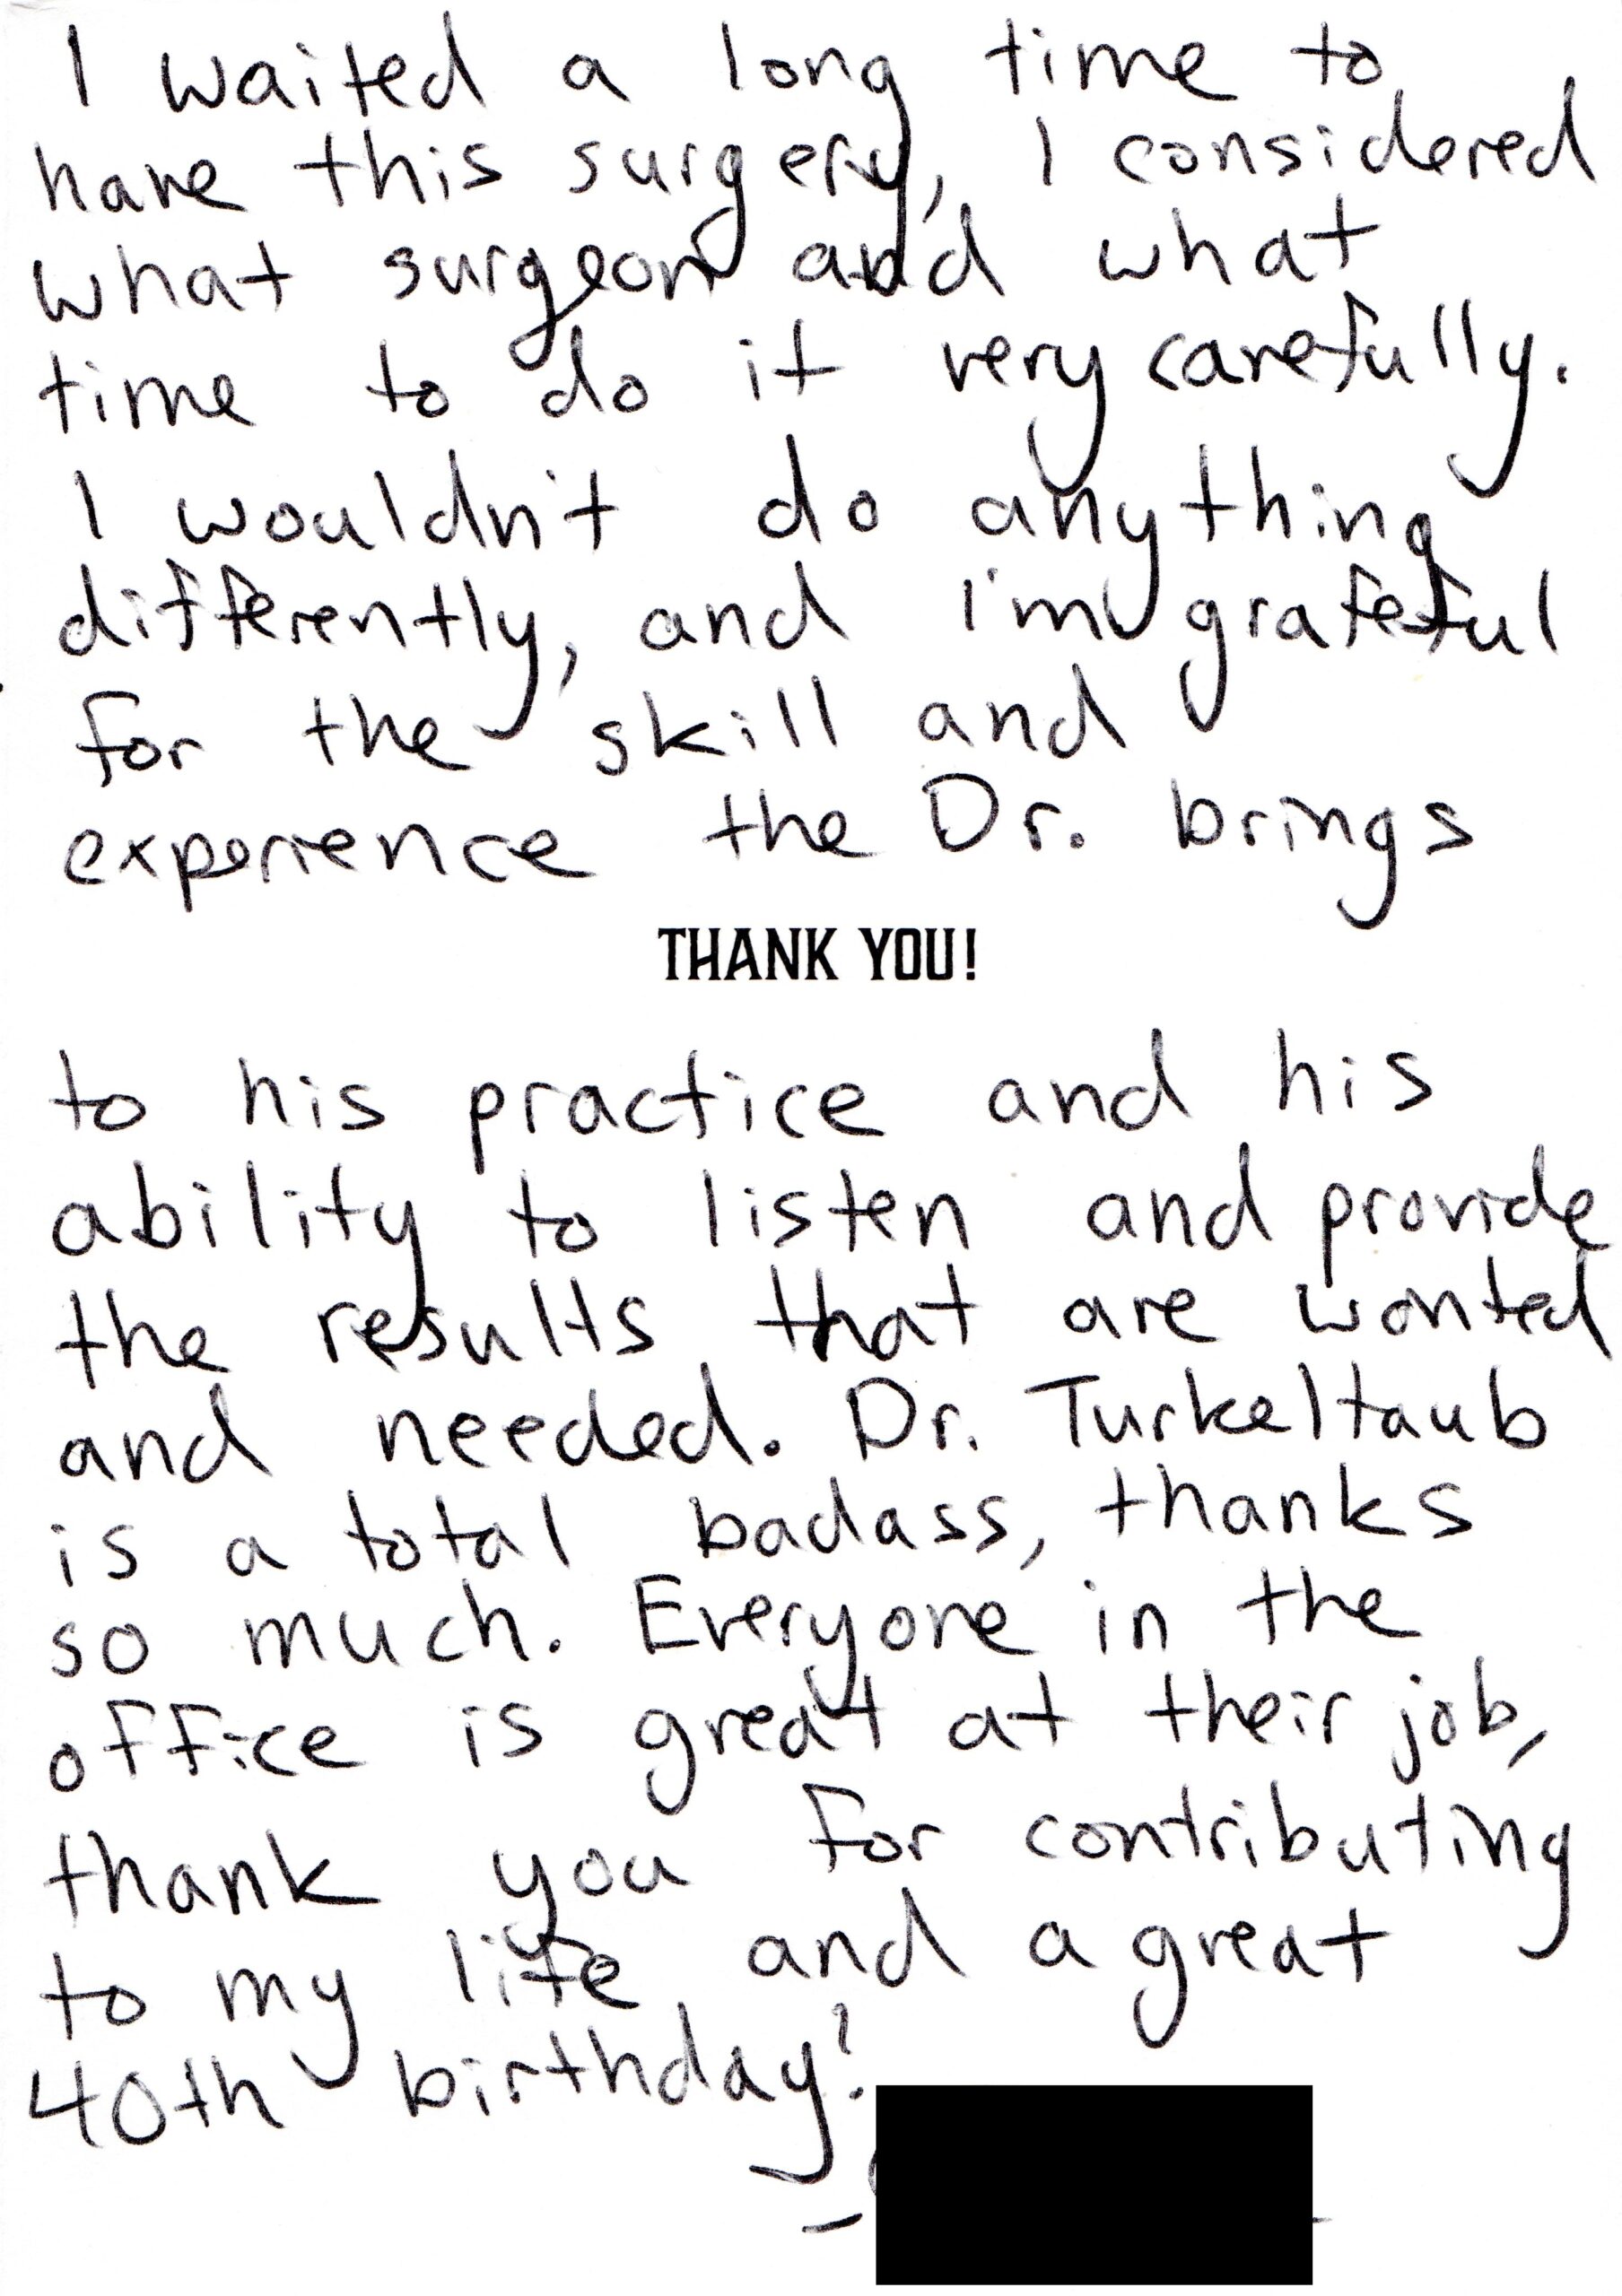 I waited a long time to
have this surgery, I considered
what surgeon and what
time to do it very carefully.
I wouldn't do anything
differently, and I'm grateful
for the skill and
experience the Dr. brings
THANK YOU!
to his practice and his
ability to listen and provide
the results that are wanted
and needed. Dr. Turkeltaub
is a total badass, thanks
so much. Everyone in the
office is great at their job,
thank you for contributing
to my life and a great
40th birthday!